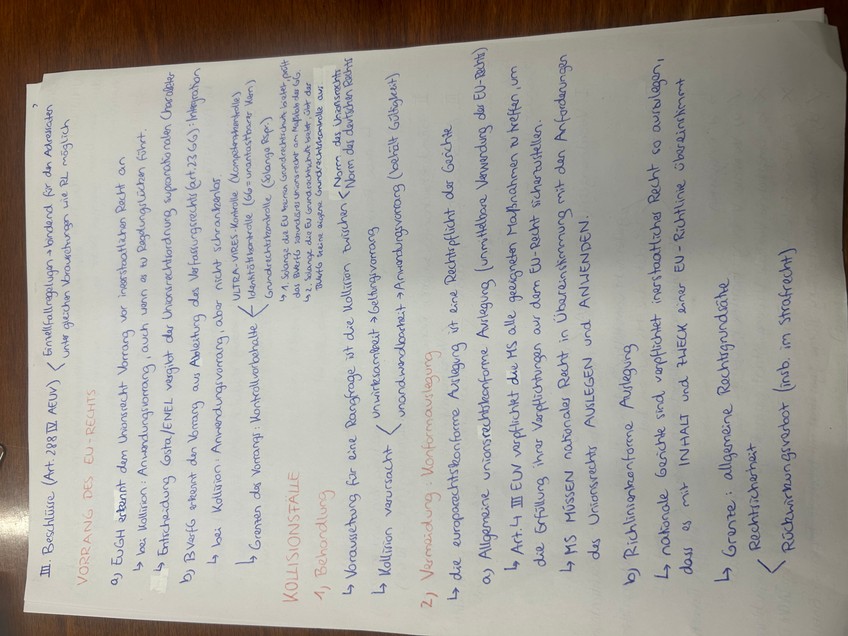 III. Beschlüsse (Art. 288 IV AEUV) < Einzelfallregelugen → bindend für den Adressaten
unter gleichen Voraussetzungen wie RL möglich
VORRANG DES EU-RECHTS
a) EuGH erkennt dem Unionsrecht Vorrang vor innerstaatlichen Recht an
↳ bei Kollision: Anwendungsvorrang, auch wenn es zu Regelungslücken führt.
↳ Entscheidung Costa/ENEL vergibt der Unionsrechtsordnung supranationalen Charakter
b) BVerfG erkennt den Vorrang aus Ableitung des Verfassungsrechts (art. 23 GG): Integration
↳ bei Kollision: Anwendungsvorrang, aber nicht schrankenlos
↳ Grenzen des Vorrangs: Kontrollvorbehalte < ULTRA-VIRES-Kontrolle (Kompetenzkontrolle)
Identitätskontrolle (GG = unantastbarer Kern)
Grundrechtskontrolle (Solange Rspr.)
↳ 1. Solange die EU keinen Grundrechtschutz bietet, prüft
das BVerfG sekundäres Unionsrecht am Maßstab des GG.
↳ 2. Solange die EU Grundrechtschutz bietet, übt das
BVerfG keine eigene Grundrechtskontrolle aus
KOLLISIONSFÄLLE
1) Behandlung
↳ Voraussetzung für eine Rangfrage ist die Kollision zwischen < Norm des Unionsrechts
Norm des deutschen Rechts
↳ Kollision verursacht < unwirksamkeit → Geltungsvorrang
unandwendbarkeit → Anwendungsvorrang (behält Gültigkeit)
2) Vermeidung: Konformauslegung
↳ die europarechtskonforme Auslegung ist eine Rechtspflicht der Gerichte
a) Allgemeine unionsrechtskonforme Auslegung (unmittelbare Verwendung des EU-Rechts)
↳ Art. 4 III EUV verpflichtet die MS alle geeigneten Maßnahmen zu treffen, um
die Erfüllung ihrer Verpflichtungen aus dem EU-Recht sicherzustellen.
↳ MS MÜSSEN nationales Recht in Übereinstimmung mit den Anforderungen
des Unionsrechts AUSLEGEN und ANWENDEN.
b) Richtlinienkonforme Auslegung
↳ nationale Gerichte sind verpflichtet innerstaatliches Recht so auszulegen,
dass es mit INHALT und ZWECK einer EU-Richtlinie übereinstimmt
↳ Grenze: allgemeine Rechtsgrundsätze
< Rechtssicherheit
Rückwirkungsverbot (insb. im Strafrecht)